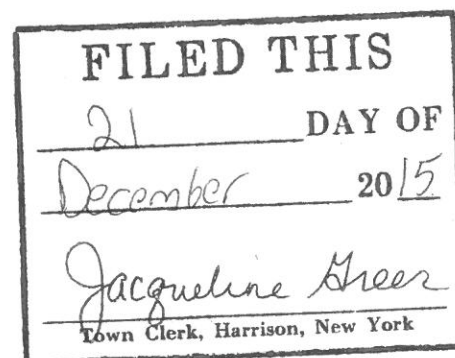 FILED THIS
21 DAY OF
December 2015
Jacqueline Greer
Town Clerk, Harrison, New York